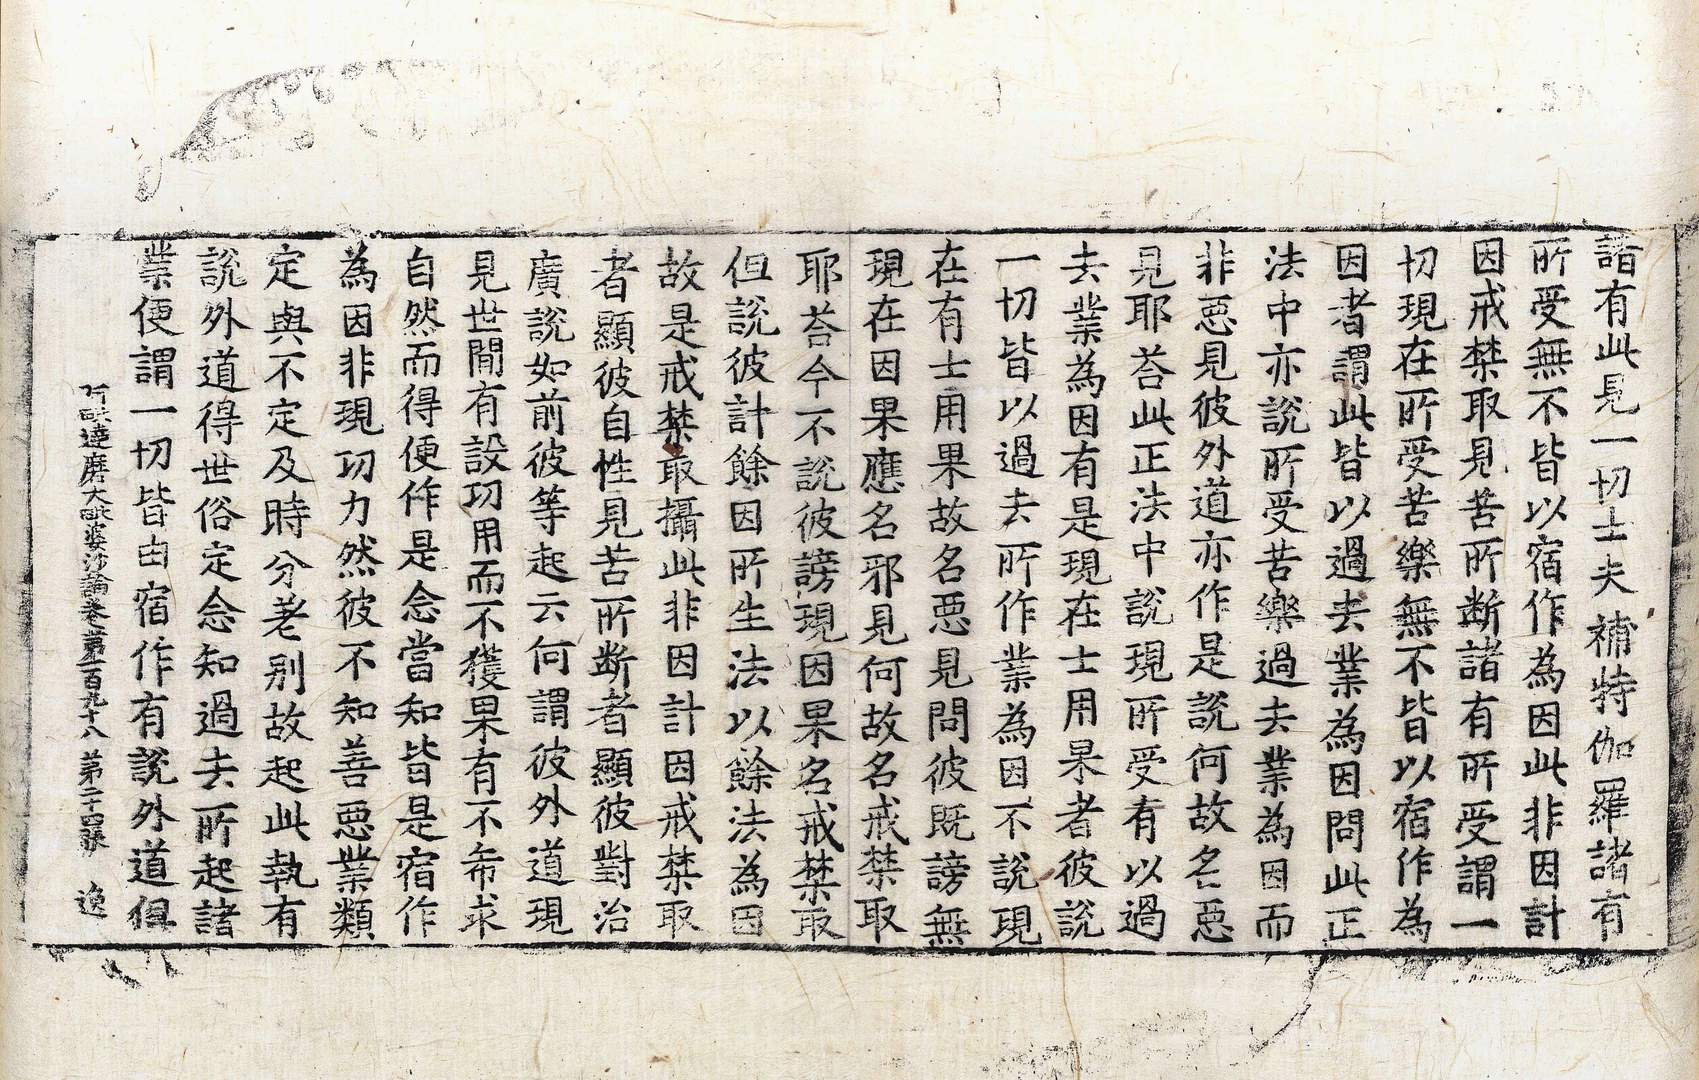 諸有此見一切士夫補特伽羅諸有
所受無不皆以宿作為因此非因計
因戒禁取見苦所断諸有所受謂一
切現在所受苦樂無不皆以宿作為
因者謂此皆以過去業為因問此正
法中亦說所受苦樂過去業為因而
非惡見彼外道亦作是說何故名惡
見耶荅此正法中說現所受有以過
去業為因有是現在士用果者彼說
一切皆以過去所作業為因不說現
在有士用果故名惡見問彼既謗無
現在因果應名邪見何故名戒禁取
耶荅今不說彼謗現因果名戒禁取
但說彼計餘因所生法以餘法為因
故是戒禁取攝此非因計因戒禁取
者顯彼自性見苦所断者顯彼對治
廣說如前彼等起云何謂彼外道現
見世間有設功用而不獲果有不希求
自然而得便作是念當知皆是宿作
為因非現功力然彼不知善惡業類
定與不定及時分差别故起此執有
說外道得世俗定念知過去所起諸
業便謂一切皆由宿作有說外道但
阿毗達磨大毗婆沙論卷第一百九十八 第二十四張 逸